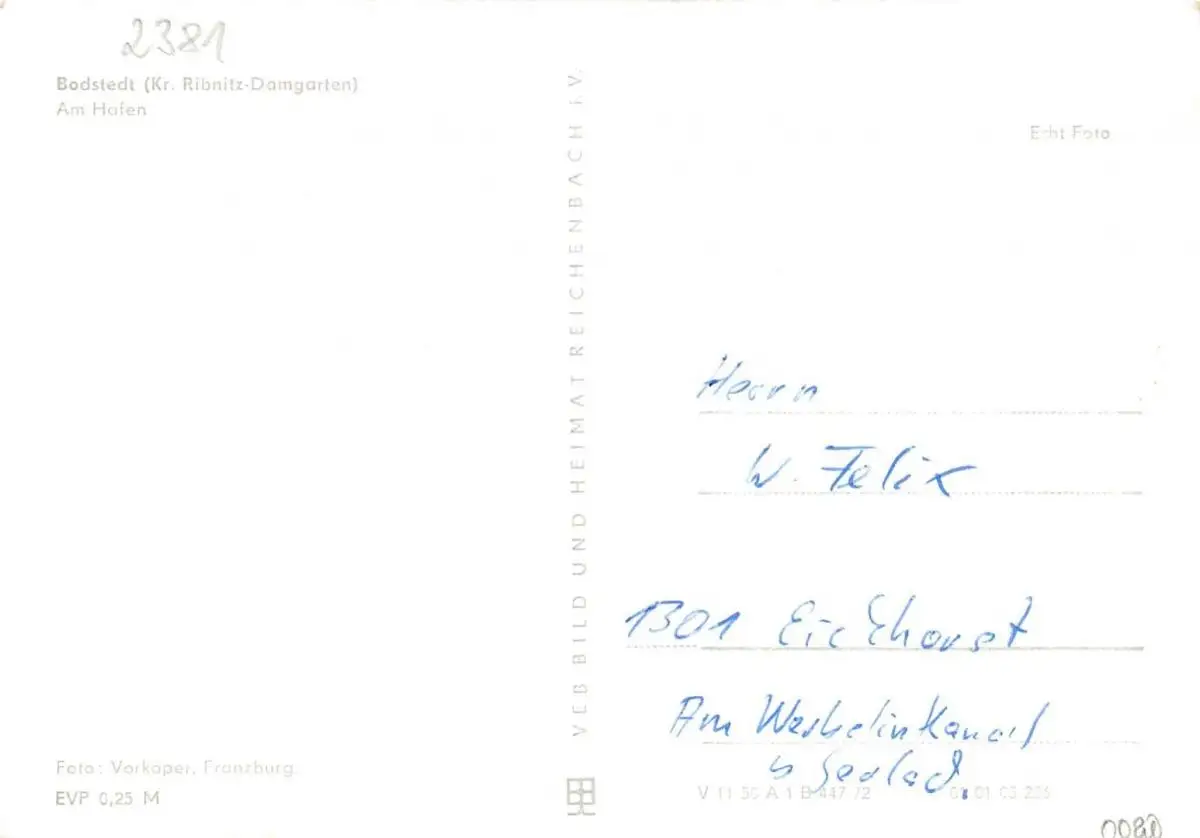 2381
Bodstedt (Kr. Ribnitz-Damgarten)
Am Hafen
Echt Foto
VEB BILD UND HEIMAT REICHENBACH i. V.
Herrn
W. Felix
1301 Eichhorst
Am Werbelinkanal
b Gerlach.
Foto: Vorkoper, Franzburg.
EVP 0,25 M
V 11 50 A 1 B 447/72
01 03 235
0080